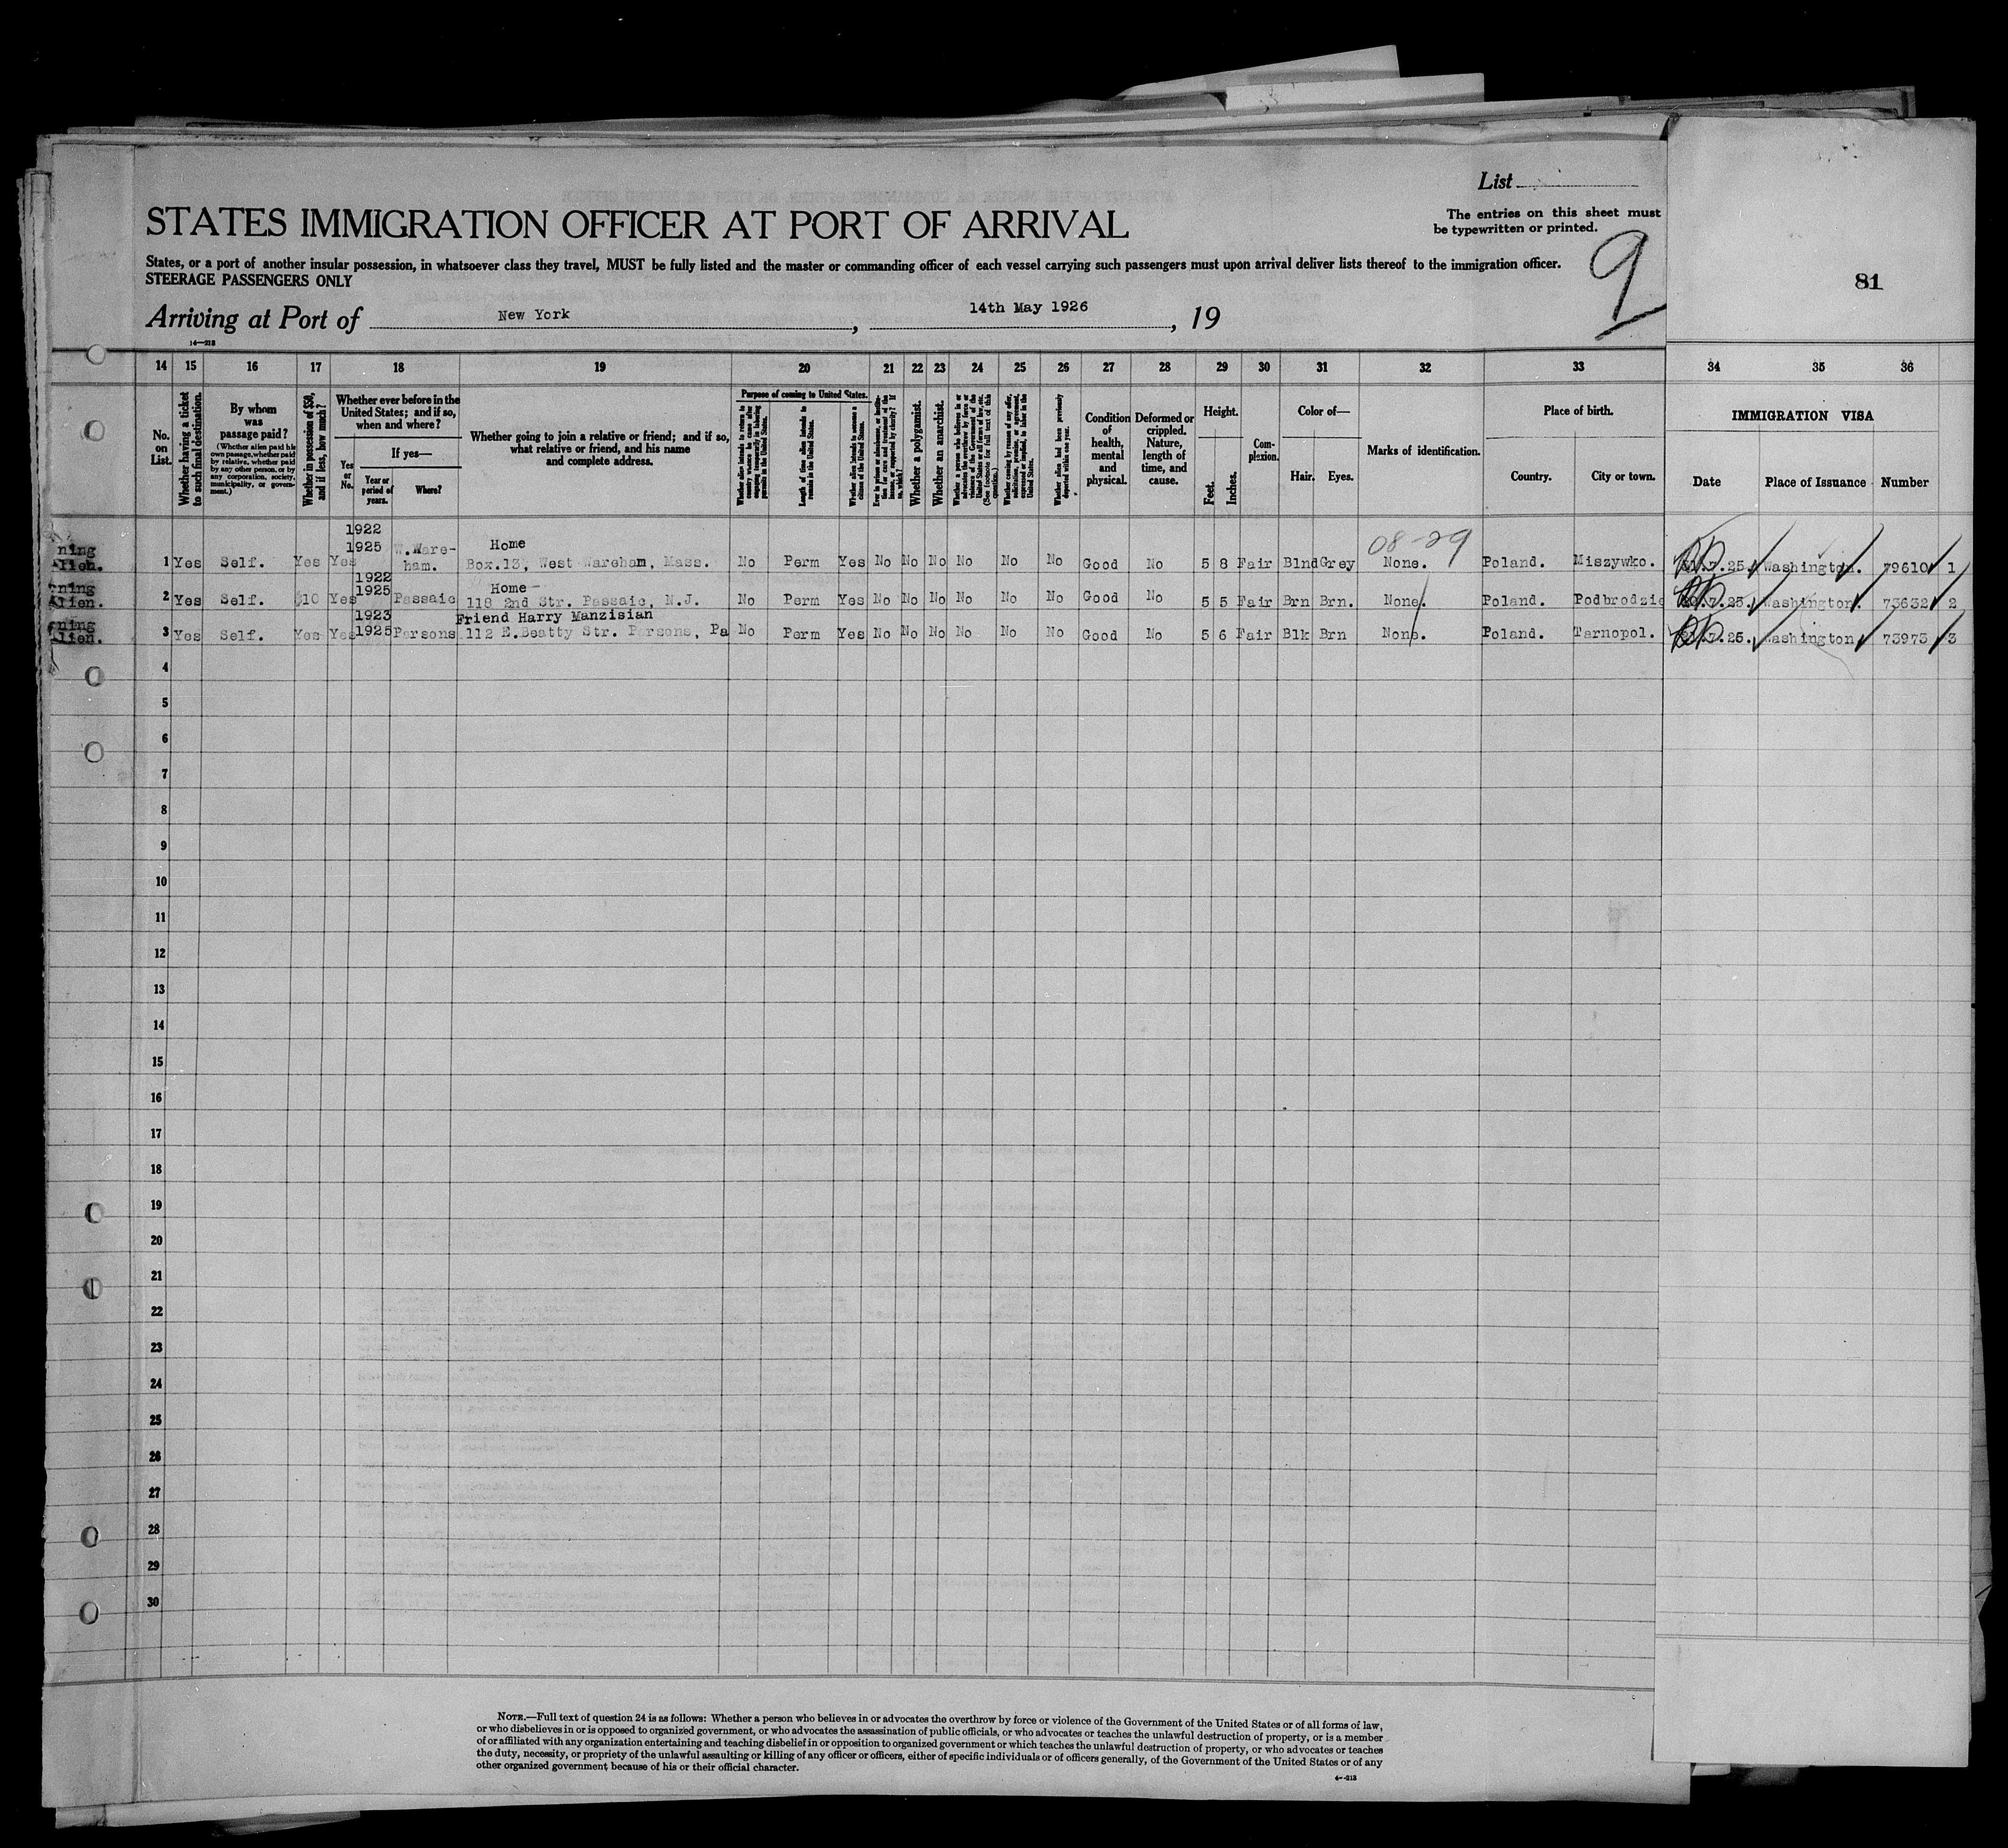 List
The entries on this sheet must
be typewritten or printed.
9
81
STATES IMMIGRATION OFFICER AT PORT OF ARRIVAL
States, or a port of another insular possession, in whatsoever class they travel, MUST be fully listed and the master or commanding officer of each vessel carrying such passengers must upon arrival deliver lists thereof to the immigration officer.
STEERAGE PASSENGERS ONLY
Arriving at Port of New York, 14th May 1926, 19
14—213
14 15 16 17 18 19 20 21 22 23 24 25 26 27 28 29 30 31 32 33 34 35 36
No. on List.
Whether having a ticket to such final destination.
By whom was passage paid?
(Whether alien paid his own passage, whether paid by relative, whether paid by any other person, or by any corporation, society, municipality, or government.)
Whether in possession of $50, and if less, how much?
Whether ever before in the United States; and if so, when and where?
Yes or No.
If yes—
Year or period of years.
Where?
Whether going to join a relative or friend; and if so, what relative or friend, and his name and complete address.
Purpose of coming to United States.
Whether alien intends to return to country whence he came after engaging temporarily in laboring pursuits in the United States.
Length of time alien intends to remain in the United States.
Whether alien intends to become a citizen of the United States.
Ever in prison or almshouse, or institution for care and treatment of the insane, or supported by charity? If so, which?
Whether a polygamist.
Whether an anarchist.
(See footnote for full text of this question.)
Whether coming by reason of any offer, solicitation, promise, or agreement, expressed or implied, to labor in the United States.
Whether alien had been previously deported within one year.
Condition of health, mental and physical.
Deformed or crippled. Nature, length of time, and cause.
Height.
Feet. Inches.
Complexion.
Color of—
Hair. Eyes.
Marks of identification.
Place of birth.
Country. City or town.
IMMIGRATION VISA
Date Place of Issuance Number
08-29
ning
1922
1925 W.Ware- Home
1 Yes Self. Yes Yes ham. Box.13, West Wareham, Mass. No Perm Yes No No No No No No Good No 5 8 Fair Blnd Grey None. Poland. Miszywko. .7.25. Washington. 79610 1
ning
1922
1925 Home
lien. 2 Yes Self. $10 Yes Passaic 118 2nd Str. Passaic, N.J. No Perm Yes No No No No No No Good No 5 5 Fair Brn Brn. None. Poland. Podbrodzie .7.25. Washington. 73632 2
ning
1923 Friend Harry Manzisian
lien. 3 Yes Self. Yes Yes 1925 Persons 112 E.Beatty Str. Persons, Pa No Perm Yes No No No No No No Good No 5 6 Fair Blk Brn None. Poland. Tarnopol. .7.25. Washington 73973 3
4
5
6
7
8
9
10
11
12
13
14
15
16
17
18
19
20
21
22
23
24
25
26
27
28
29
30
NOTE.—Full text of question 24 is as follows: Whether a person who believes in or advocates the overthrow by force or violence of the Government of the United States or of all forms of law,
or who disbelieves in or is opposed to organized government, or who advocates the assassination of public officials, or who advocates or teaches the unlawful destruction of property, or is a member
of or affiliated with any organization entertaining and teaching disbelief in or opposition to organized government or which teaches the unlawful destruction of property, or who advocates or teaches
the duty, necessity, or propriety of the unlawful assaulting or killing of any officer or officers, either of specific individuals or of officers generally, of the Government of the United States or of any
other organized government because of his or their official character.